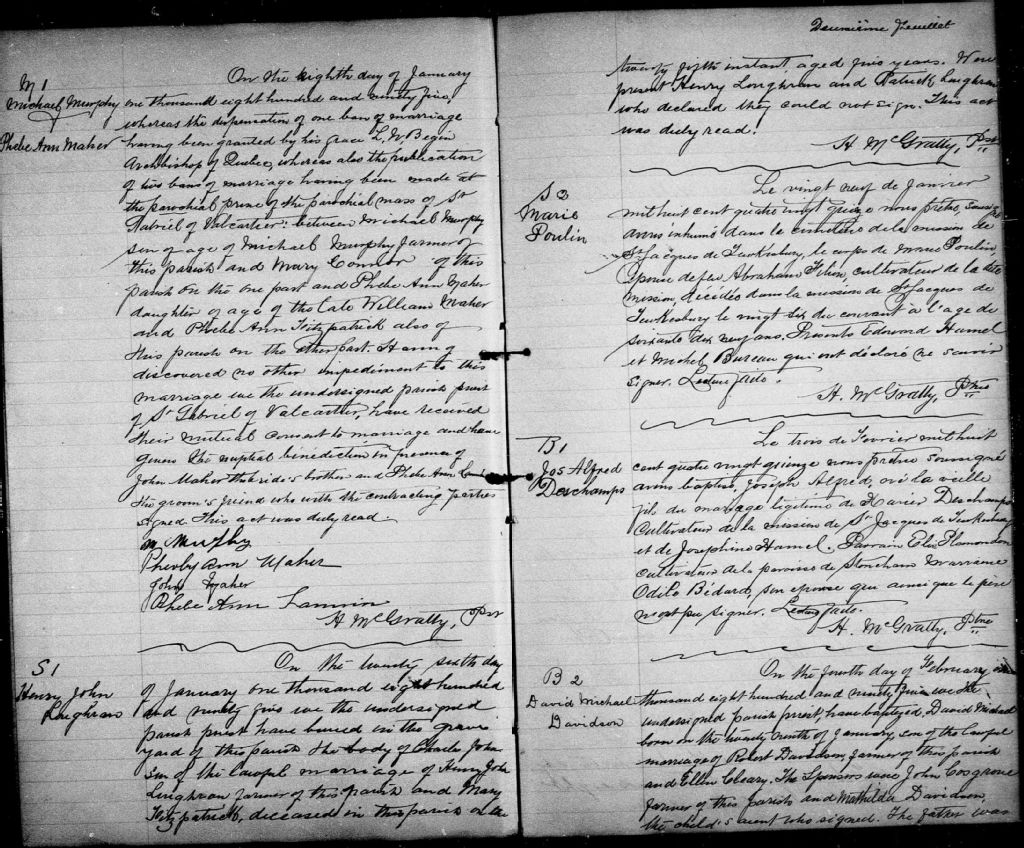 M 1
Michael Murphy
Phebe Ann Maher
On the eighth day of January
one thousand eight hundred and ninety five,
whereas the dispensation of one ban of marriage
having been granted by his grace L. N. Begin
Archbishop of Quebec, whereas also the publication
of two bans of marriage having been made at
the parochial prone of the parochial mass of St
Gabriel of Valcartier: between Michael Murphy
son of age of Michael Murphy farmer of
this parish and Mary Connor of this
parish on the one part and Phebe Ann Maher
daughter of age of the late William Maher
and Phebe Ann Fitzpatrick also of
this parish on the other part. Having
discovered no other impediment to this
marriage we the undersigned parish priest
of St Gabriel of Valcartier, have received
their mutual consent to marriage and have
given the nuptial benediction in presence of
John Maher the bride's brother and Phebe Ann
the groom's friend who with the contracting parties
signed. This act was duly read.
M. Murphy
Pheeby Ann Maher
John Maher
Phebe Ann Lannin
H. McGratty, Pst
S 1
Henry John
Loughran
On the twenty sixth day
of January one thousand eight hundred
and ninety five we the undersigned
parish priest have buried in the grave
yard of this parish the body of Charles John
son of the lawful marriage of Henry John
Loughran farmer of this parish and Mary
Fitzpatrick, deceased in this parish on the
Deuxième feuillet
twenty fifth instant aged five years. Were
present Henry Loughran and Patrick Loughran
who declared they could not sign. This act
was duly read.
H. McGratty, Pst
S 2
Marie
Poulin
Le vingt neuf de Janvier
mil huit cent quatre vingt quinze nous prêtre, soussigné
avons inhumé dans le cimetière de la mission de
St Jacques de Tewkesbury, le corps de Marie Poulin,
Epouse de feu Abraham, cultivateur de la dite
mission, décédée dans la mission de St Jacques de
Tewkesbury le vingt six du courant à l'age de
soixante dix neuf ans. Présents Edouard Hamel
et Michel Bureau qui ont déclaré ne savoir
signer. Lecture faite.
H. McGratty, Ptre
B 1
Jos Alfred
Deschamps
Le trois de Fevrier mil huit
cent quatre vingt quinze nous prêtre soussigné
avons baptisé, Joseph Alfred, né la veille
fils du mariage légitime de Xavier Deschamps
Cultivateur de la mission de St Jacques de Tewkesbury
et de Josephine Hamel. Parrain Elie Plamondon
cultivateur de la paroisse de Stoneham Marraine
Odile Bédard, son epouse qui ainsi que le père
n'ont pu signer. Lecture faite.
H. McGratty, Ptre
B 2
David Michael
Davidson
On the fourth day of February one
thousand eight hundred and ninety five we the
undersigned parish priest, have baptized, David Michael
born on the twenty ninth of January, son of the lawful
marriage of Robert Davidson, farmer of this parish
and Ellen Cleary. The Sponsors were John Cosgrove
farmer of this parish and Mathilda Davidson,
the child's aunt who signed. The father was